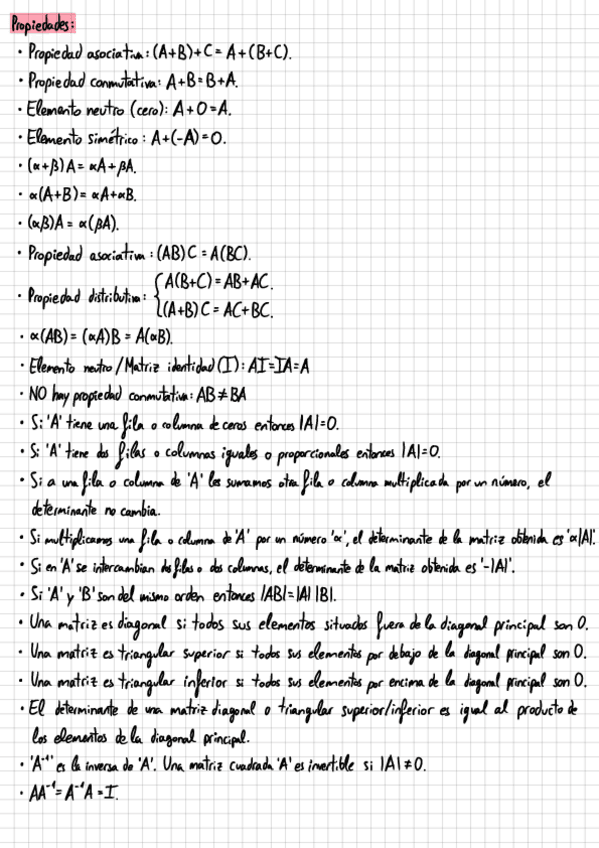 Propiedades:
• Propiedad asociativa: (A+B)+C = A+(B+C).
• Propiedad conmutativa: A+B=B+A.
• Elemento neutro (cero): A+0=A.
• Elemento simétrico: A+(-A)=0.
• (α+β)A = αA+βA.
• α(A+B) = αA+αB.
• (αβ)A = α(βA).
• Propiedad asociativa: (AB)C = A(BC).
• Propiedad distributiva: { A(B+C) = AB+AC.
(A+B)C = AC+BC.
• α(AB) = (αA)B = A(αB).
• Elemento neutro/Matriz identidad (I): AI=IA=A
• NO hay propiedad conmutativa: AB≠BA
• Si 'A' tiene una fila o columna de ceros entonces |A|=0.
• Si 'A' tiene dos filas o columnas iguales o proporcionales entonces |A|=0.
• Si a una fila o columna de 'A' les sumamos otra fila o columna multiplicada por un número, el
determinante no cambia.
• Si multiplicamos una fila o columna de 'A' por un número 'α', el determinante de la matriz obtenida es 'α|A|'.
• Si en 'A' se intercambian dos filas o dos columnas, el determinante de la matriz obtenida es '-|A|'.
• Si 'A' y 'B' son del mismo orden entonces |AB|=|A||B|.
• Una matriz es diagonal si todos sus elementos situados fuera de la diagonal principal son 0.
• Una matriz es triangular superior si todos sus elementos por debajo de la diagonal principal son 0.
• Una matriz es triangular inferior si todos sus elementos por encima de la diagonal principal son 0.
• El determinante de una matriz diagonal o triangular superior/inferior es igual al producto de
los elementos de la diagonal principal.
• 'A⁻¹' es la inversa de 'A'. Una matriz cuadrada 'A' es invertible si |A|≠0.
• AA⁻¹ = A⁻¹A = I.